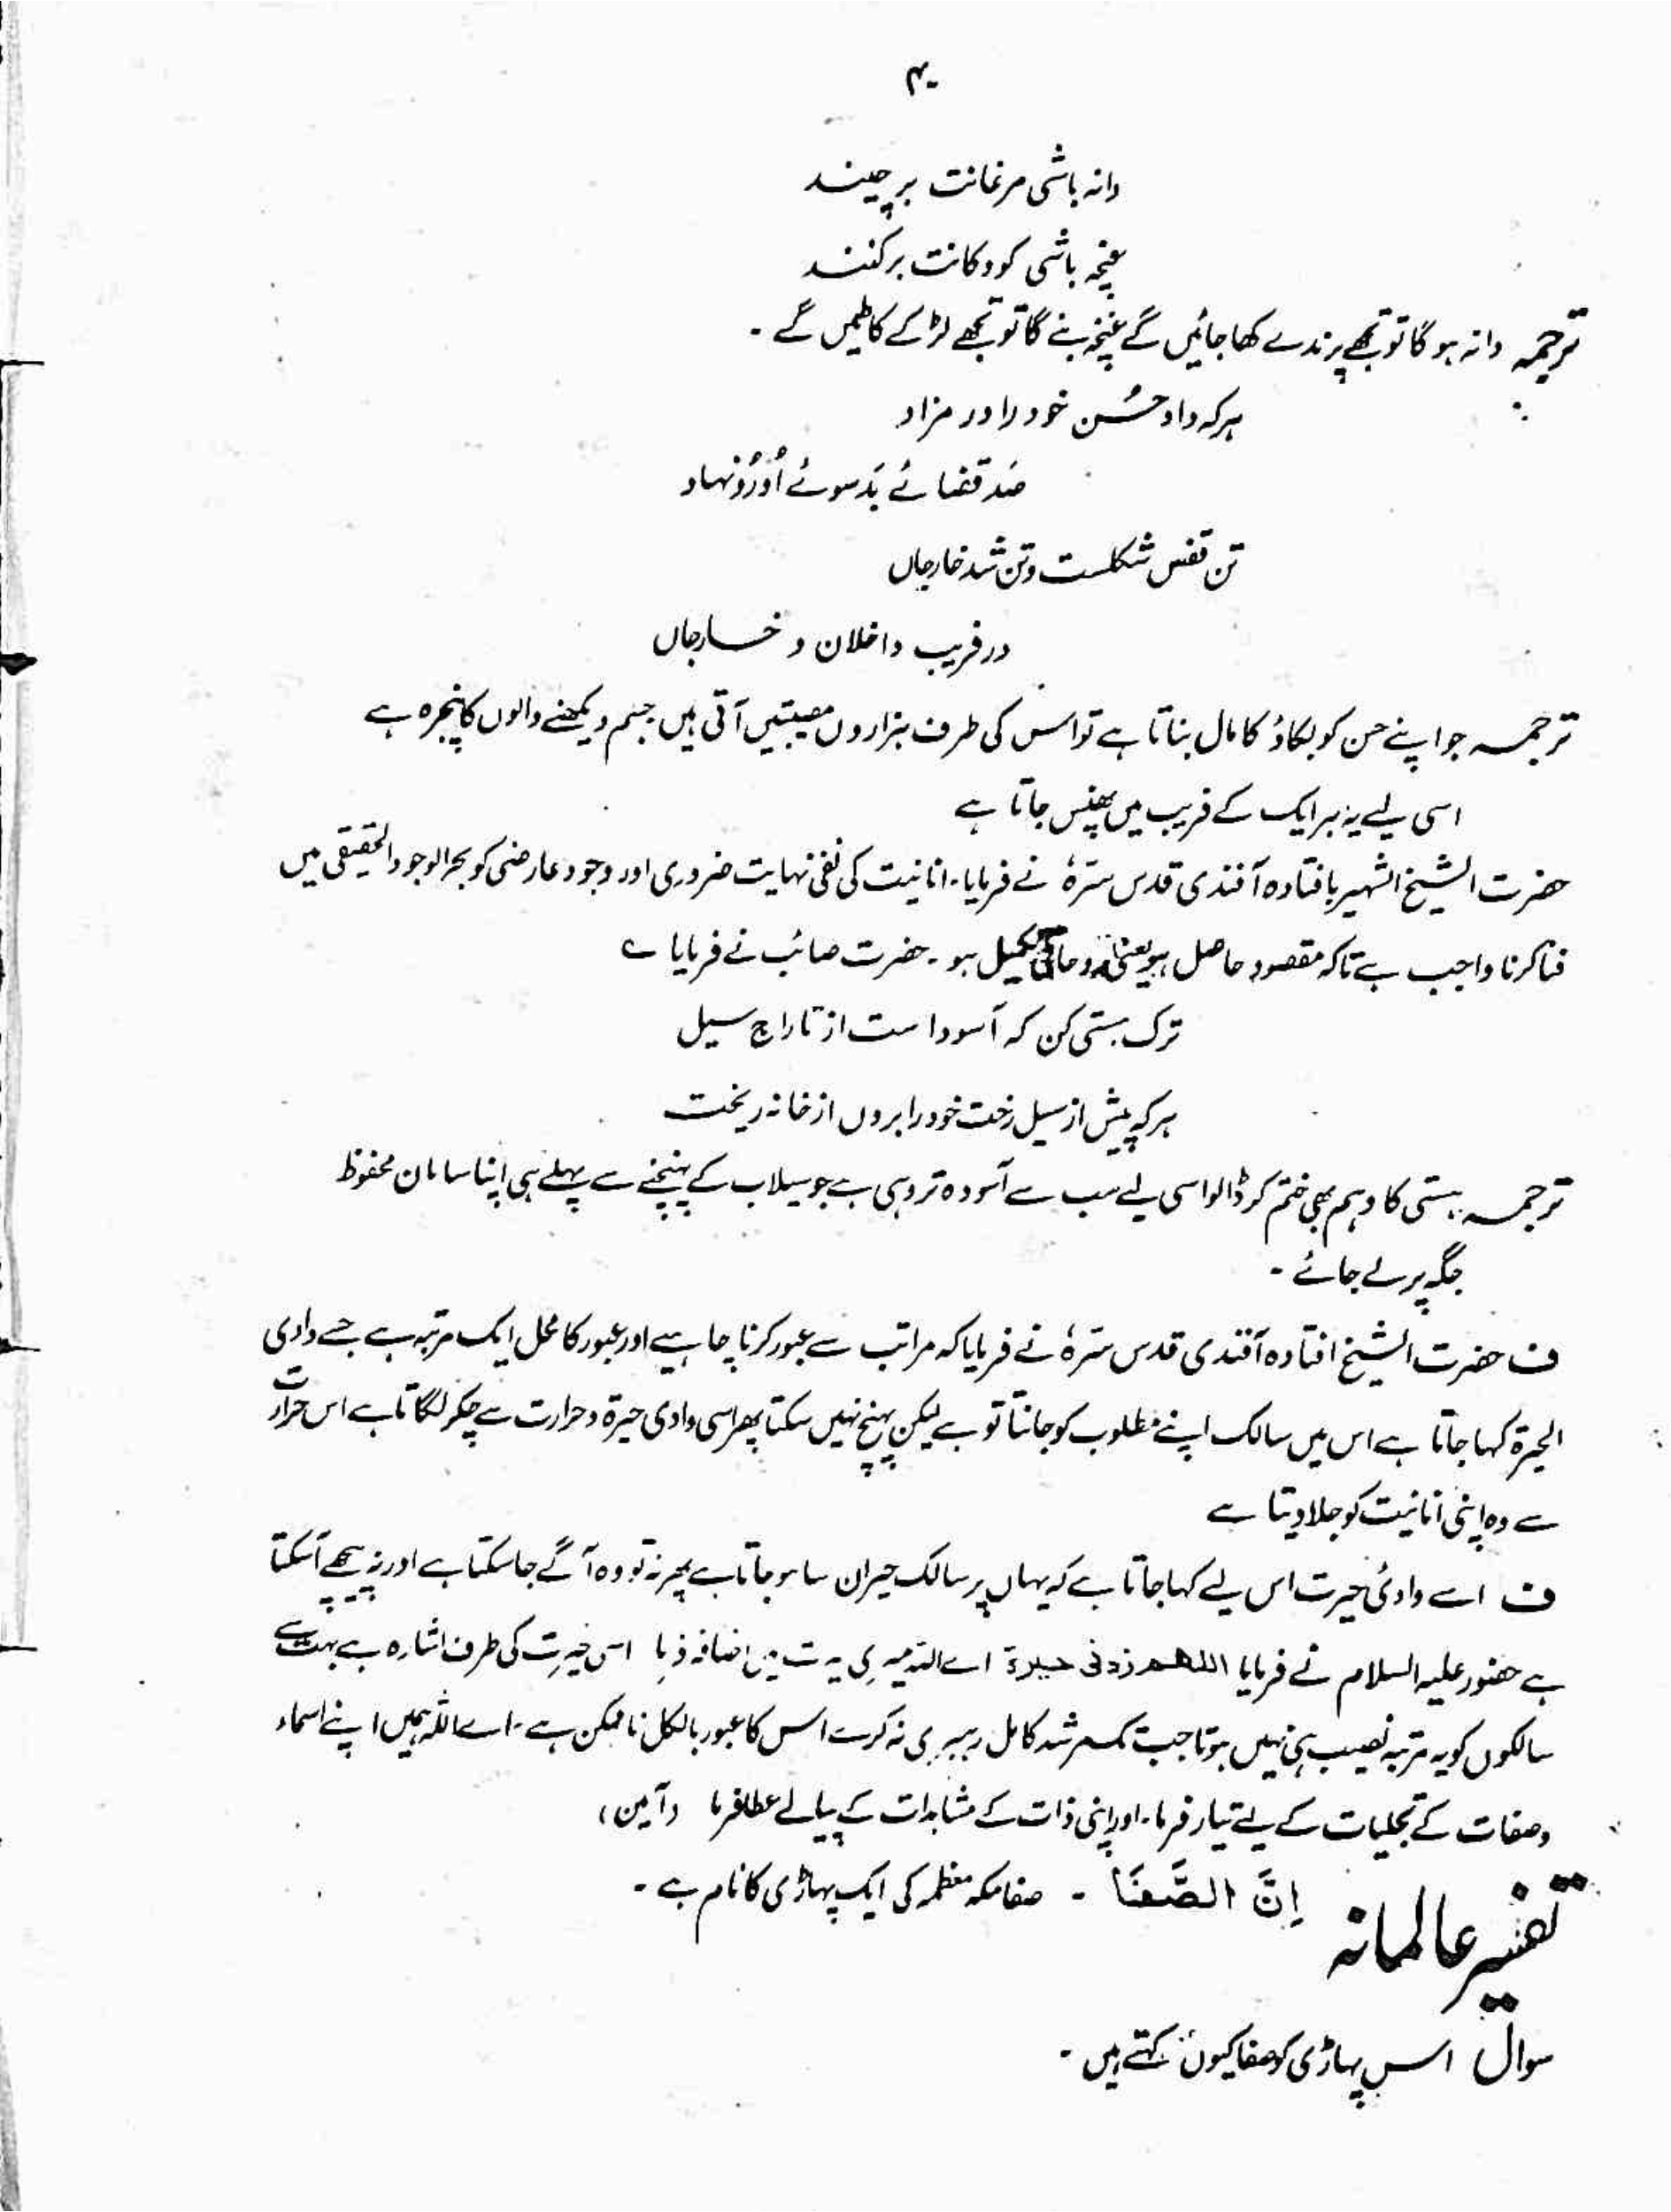 ۴۰
دانہ باشی مرغانت برچیند
غنچہ باشی کودکانت برکنند
ترجمہ دانہ ہوگا تو تجھے پرندے کھا جائیں گے غنچہ بنے گا تو تجھے لڑکے کاٹیں گے ۔
ہرکہ داد حُسن خود را در مزاد
صَد قضائے بَد سوئے اُو رُو نہاد
تن قفس شکلست و تن شد خار جاں
در فریب داخلان و خارجاں
ترجمہ جو اپنے حسن کو بکاؤ کا مال بناتا ہے تو اس کی طرف ہزاروں مصیبتیں آتی ہیں جسم دیکھنے والوں کا پنجرہ ہے
اسی لیے یہ ہر ایک کے فریب میں پھنس جاتا ہے
حضرت الشیخ الشہیر بافتادہ آفندی قدس سترہٗ نے فرمایا ۔ انانیت کی نفی نہایت ضروری اور وجود عارضی کو بحر الوجود الحقیقی میں
فنا کرنا واجب ہے تاکہ مقصود حاصل ہو یعنی روحانی تکمیل ہو ۔ حضرت صائب نے فرمایا ے
ترک ہستی کن کہ آسودا ست از تاراج سیل
ہرکہ پیش از سیل رخت خود را بروں از خانہ ریخت
ترجمہ ہستی کا وہم بھی ختم کر ڈالو اسی لیے سب سے آسودہ تر وہی ہے جو سیلاب کے پہنچنے سے پہلے ہی اپنا سامان محفوظ
جگہ پر لے جائے ۔
ف حضرت الشیخ افتادہ آفندی قدس سترہٗ نے فرمایا کہ مراتب سے عبور کرنا چاہیے اور عبور کا محل ایک مرتبہ ہے جسے وادی
الحیرۃ کہا جاتا ہے اس میں سالک اپنے مطلوب کو جانتا تو ہے لیکن پہنچ نہیں سکتا پھر اسی وادی حیرۃ و حرارت سے چکر لگاتا ہے اس حرارت
سے وہ اپنی انانیت کو جلا دیتا ہے
ف اسے وادئ حیرت اس لیے کہا جاتا ہے کہ یہاں پر سالک حیران سا ہو جاتا ہے پھر نہ تو وہ آگے جا سکتا ہے اور نہ پیچھے آ سکتا
ہے حضور علیہ السلام نے فرمایا اللھم زدنی حیرۃ اے اللہ میری حیرت میں اضافہ فرما اسی حیرت کی طرف اشارہ ہے بہت سے
سالکوں کو یہ مرتبہ نصیب ہی نہیں ہوتا جب تک مرشد کامل رہبری نہ کرے اس کا عبور بالکل ناممکن ہے ۔ اے اللہ ہمیں اپنے اسماء
و صفات کے تجلیات کے لیے تیار فرما ۔ اور اپنی ذات کے مشاہدات کے پیالے عطا فرما (آمین)
تفسیر عالمانہ اِنَّ الصَّفَا ۔ صفا مکہ معظمہ کی ایک پہاڑی کا نام ہے ۔
سوال اس پہاڑی کو صفا کیوں کہتے ہیں ۔